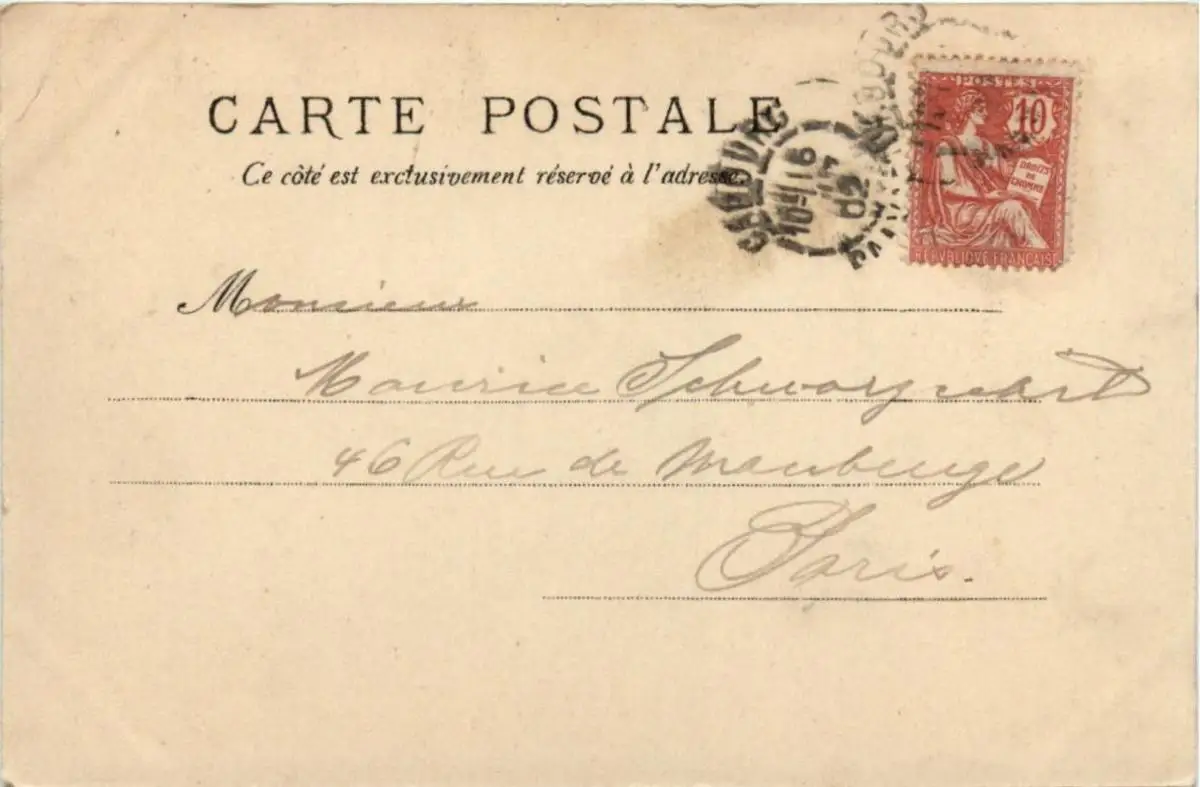 CARTE POSTALE
Ce côté est exclusivement réservé à l'adresse.
POSTES
10
DROITS
DE
L'HOMME
REPUBLIQUE FRANÇAISE
CABOURG
16
02
Monsieur
Maurice
46 Rue de Maubeuge
Paris.